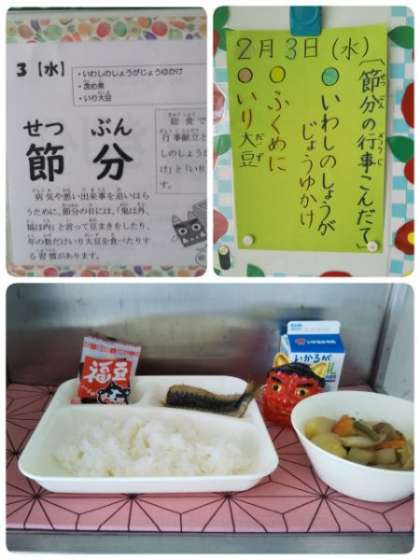 3【水】
・いわしのしょうがじょうゆかけ
・含め煮
・いり大豆
せつ ぶん
節分
給食で
行事献立と
しのしょうが
け」と「いり
す。
病気や悪い出来事を追いはら
うために、節分の日には、「鬼は外、
福は内」と言って豆まきをしたり、
年の数だけいり大豆を食べたりす
る習慣があります。
「節分の行事こんだて」
2月3日(水)
いわしのしょうが
じょうゆかけ
ふくめに
いり大豆
福豆
いかるが